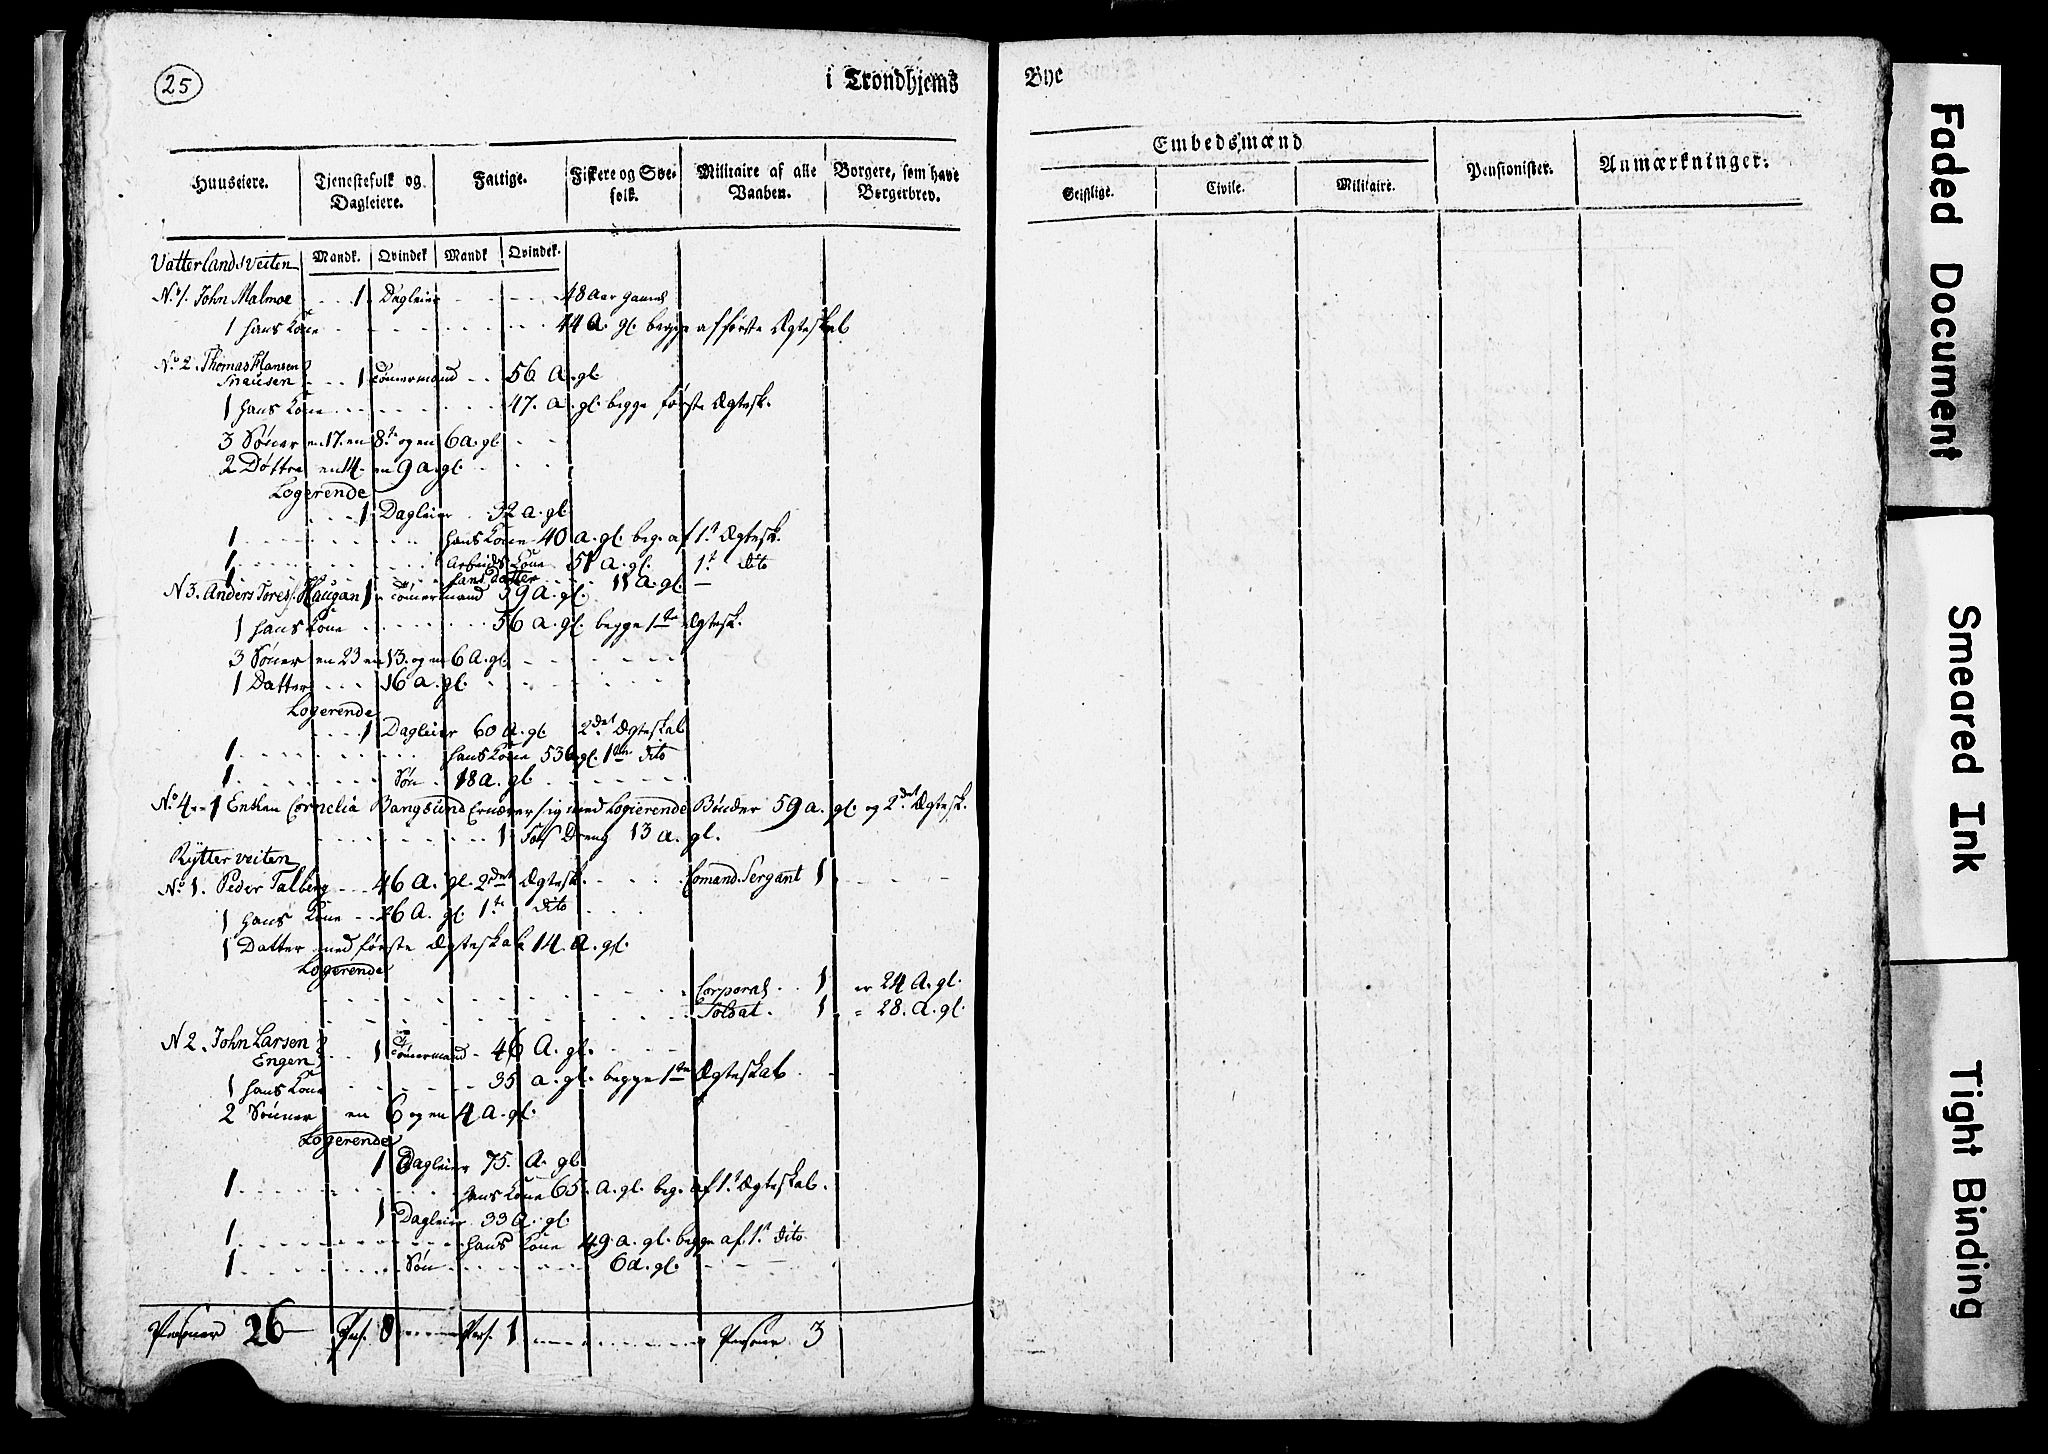 25
i Trondhjems Bye
Huuseiere. Tjenestefolk og Dagleiere. Fattige. Fiskere og Søe-folk. Militaire af alle Vaaben. Borgere, som have Borgerbrev. Embedsmænd Pensionister. Anmærkninger.
Geistlige. Civile. Militaire.
Mandk. Qvindek Mandk Qvindek.
Vatterlandsveiten
No 1. John Malmoe 1 Dagleier 48 aar gamel
1 hans Kone 44 A. gl. begge af første Ægteskab
No 2. Thomas Hansen
Snausen 1 Tømermand 56 A. gl.
1 hans Kone 47. a. gl. begge første Ægtesk.
3 Sønner en 17. en 8te og en 6 a. gl.
2 Døttre en 14. en 9 a. gl.
Logerende
1 Dagleier 32 a. gl.
1 hans Kone 40 a. gl. beg. af 1t Ægtesk.
1 Arbeids Kone 51 a. gl. 1t dito
1 hans Datter 11 a. gl.
N 3. Anders Tores. Haugan 1 Tømermand 59 a. gl.
1 hans Kone 56 a. gl. begge 1te Ægtesk.
3 Sønner en 23 en 13. og en 6 A. gl.
1 Datter 16 a. gl.
Logerende
1 Dagleier 60 a. gl. 2det Ægteskab
1 hans Kone 53 a. gl. 1te dito
1 Søn 18 a. gl.
No 4 1 Enken Cornelia Bangsund Ernærer sig med Logierende Bønder 59 a. gl. og 2det Ægtesk.
1 Fos Dreng 13 a. gl.
Rytter veiten
No 1. Peder Talberg 46 A. gl. 2det Ægtesk. Comand. Sergant 1
1 hans Kone 26 A. gl. 1te dito
1 Datter med første Ægteskab 14. a. gl.
Logerende
Corporal 1 er 24 A. gl.
Soldat. 1 = 28. a. gl.
N 2. John Larsen
Engen 1 Tømermand 46 A. gl.
1 hans Kone 35 a. gl. begge 1te Ægteskab
2 Sønner en 6 og en 4 A. gl.
Logerende
1 Dagleier 75. A. gl.
1 hans Kone 65. a. gl. beg. af 1t Ægteskab.
1 Dagleier 33 a. gl.
1 hans Kone 49. a. gl. begge af 1t dito
1 Søn 6 a. gl.
Personer 26 Pers. 8 Pers. 1 Persone 3
Faded Document
Smeared Ink
Tight Binding